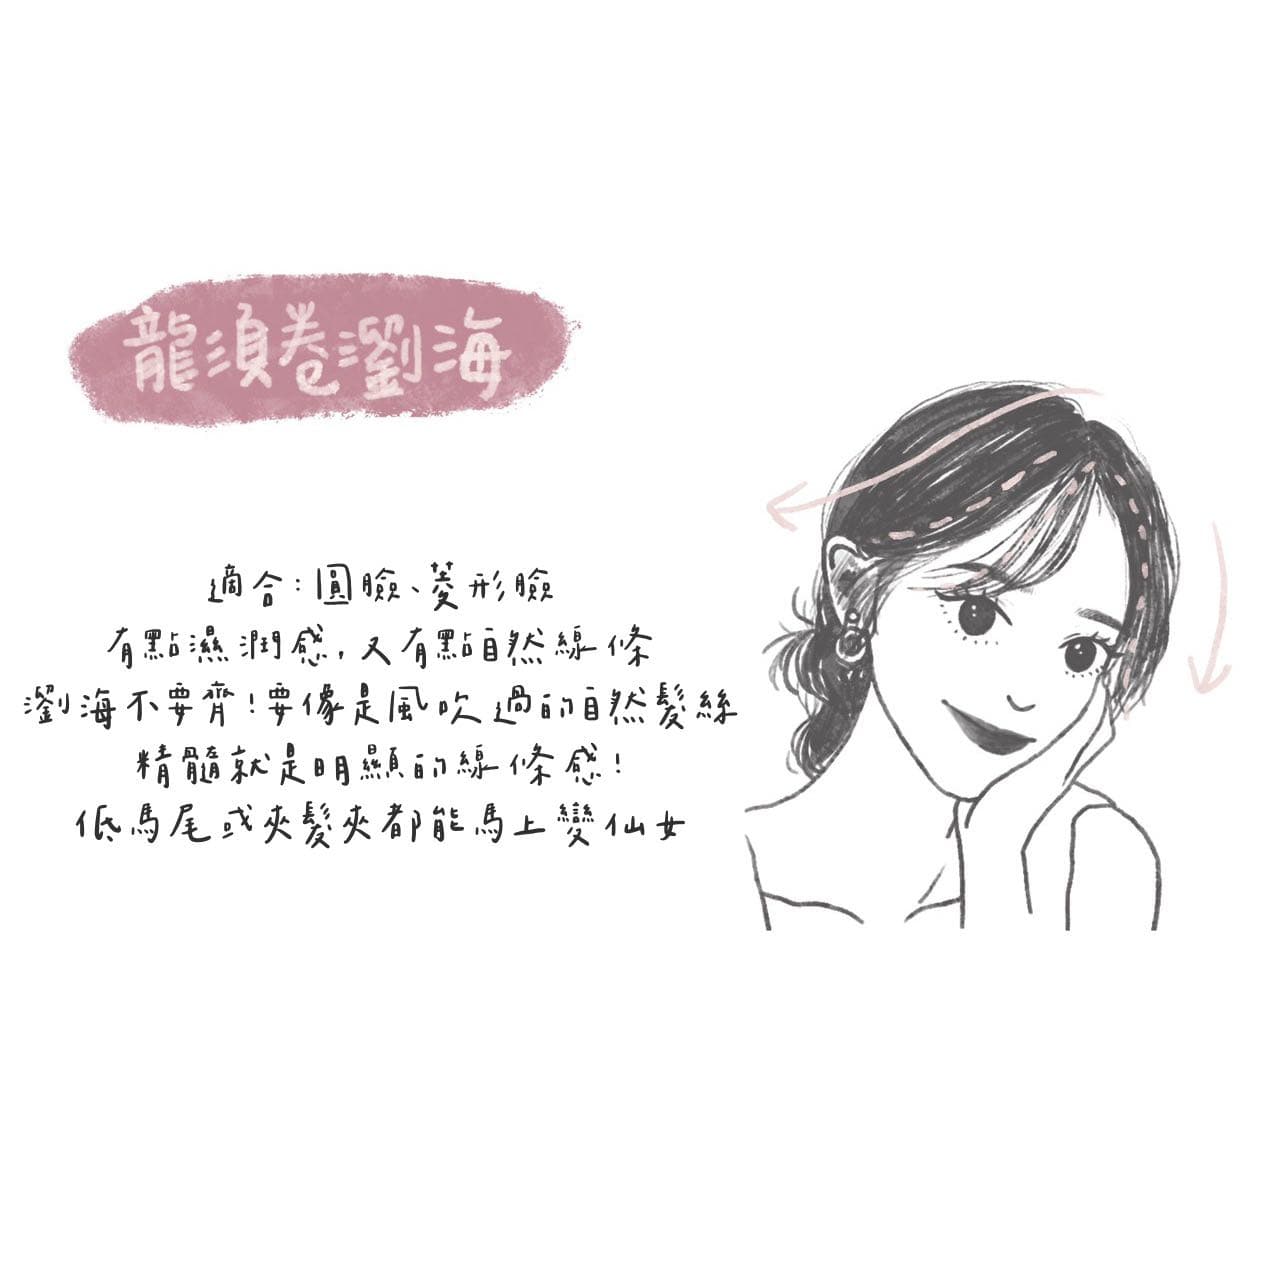 龍須卷瀏海
適合：圓臉、菱形臉
有點濕潤感，又有點自然線條
瀏海不要齊！要像是風吹過的自然髮絲
精髓就是明顯的線條感！
低馬尾或夾髮夾都能馬上變仙女